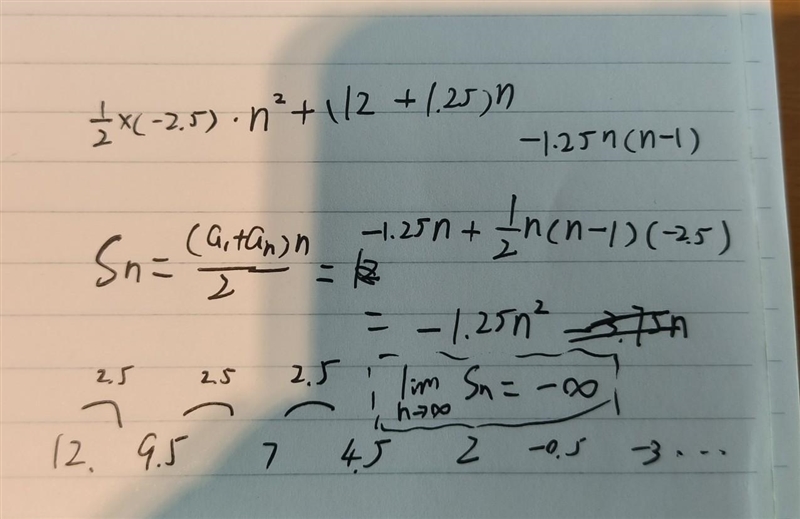 ½×(-2.5)·n²+(12+1.25)n
-1.25n(n-1)
Sn=(a₁+aₙ)n/2=-1.25n+½n(n-1)(-2.5)
=-1.25n²-3.75n
2.5 2.5 2.5
lim n→∞ Sn=-∞
12. 9.5 7 4.5 2 -0.5 -3...